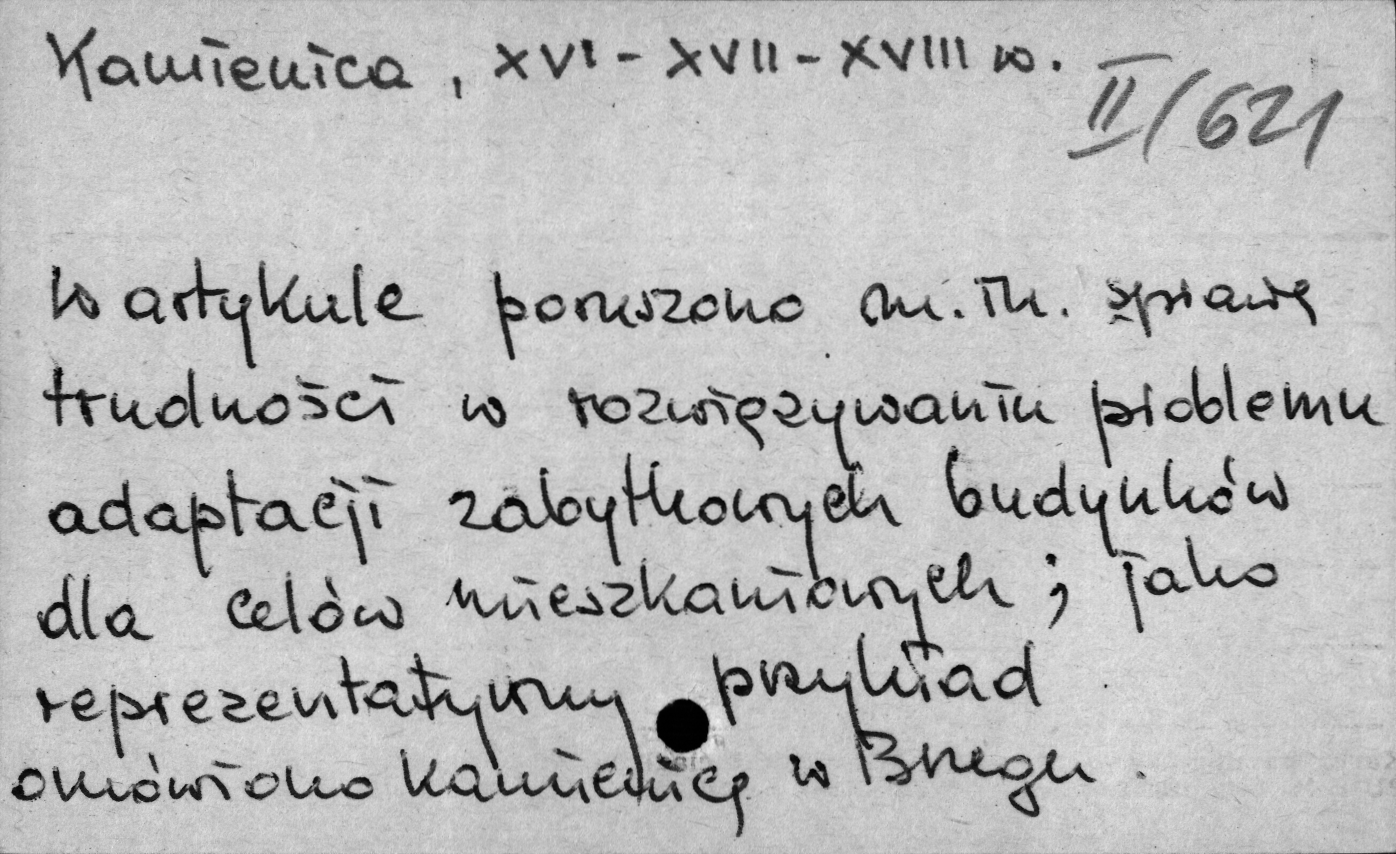 Kamienica, XVI - XVII - XVIII w.
II/621
W artykule poruszono m.in. sprawę
trudności w rozwięzywaniu problemu
adaptacji zabytkowych budynków
dla celów mieszkaniowych; jako
reprezentatywny przykład
omówiono kamienicę w Brzegu.